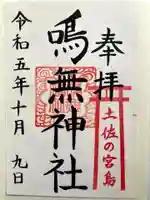 奉拝
土佐の宮島
鳴無神社
令和五年十月九日